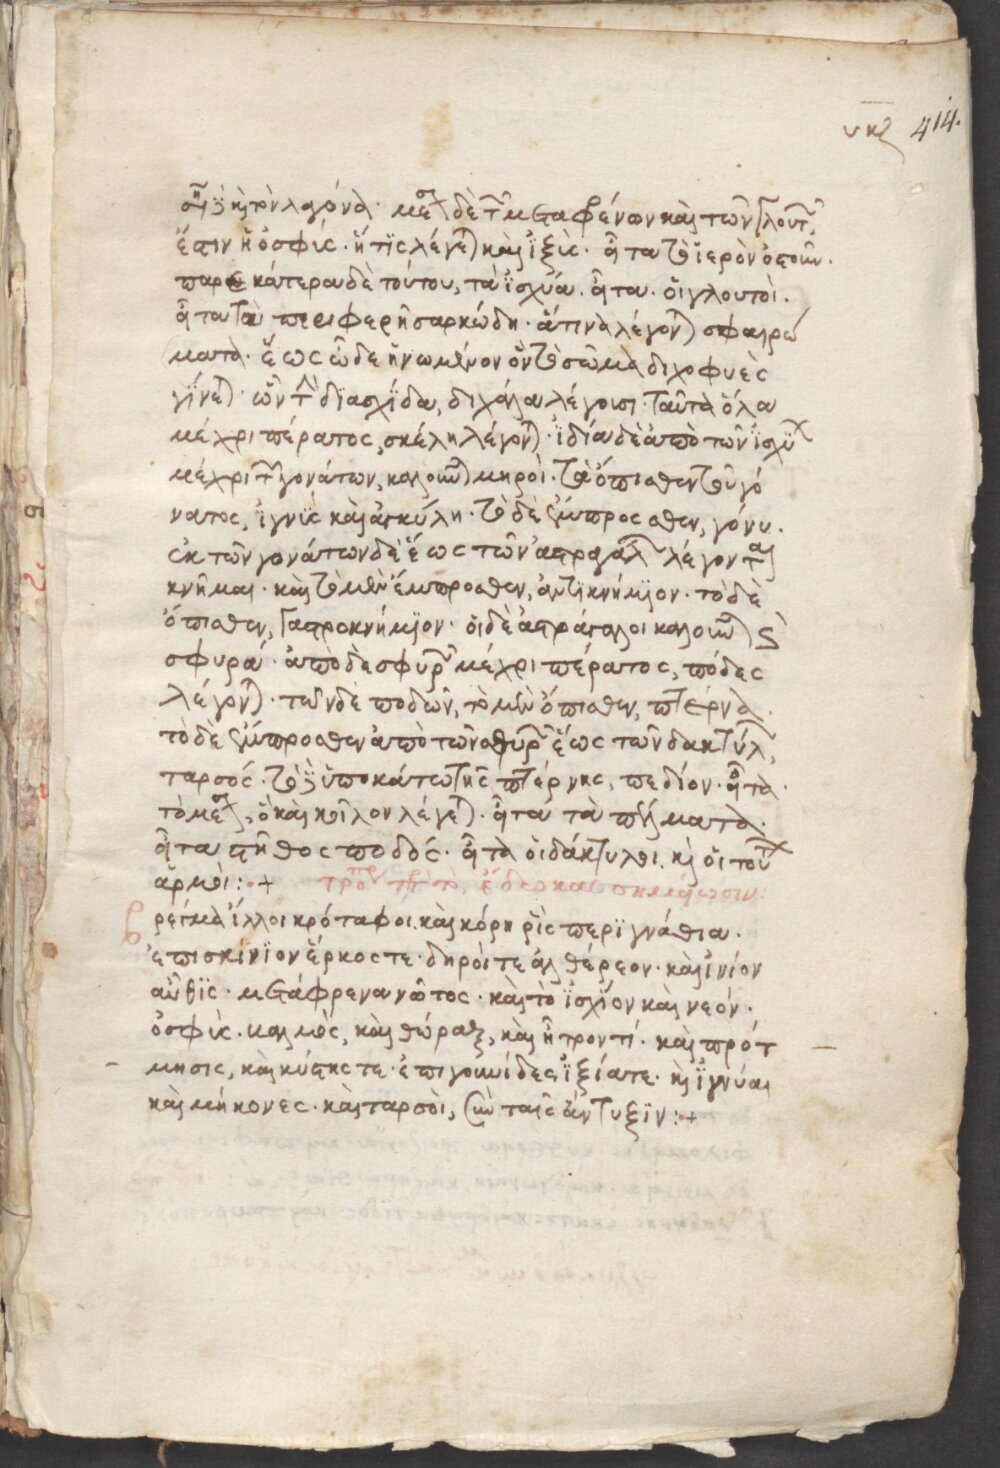 υκζ 414.
καὶ τὸν λαγόνα· μεταξὺ δὲ τῶν μεταφρένων καὶ τῶν γλουτῶν
ἔστιν ἡ ὀσφῦς· ἥτις λέγεται καὶ ἰξὺς· εἶτα τὸ ἱερὸν ὀστοῦν·
παρ' ἑκάτερα δὲ τούτου, τὰ ἰσχία· εἶτα οἱ γλουτοὶ·
εἶτα τὰ περιφερῆ σαρκώδη· ἅτινα λέγονται σφαιρώ
ματα· ἕως ὧδε ἡνωμένον ὂν τὸ σῶμα διχοφυὲς
γίνεται· ὧν τὴν διασχίδα, διχάλα λέγουσι· ταῦτα ὅλα
μέχρι πέρατος, σκέλη λέγονται· ἰδία δὲ ἀπὸ τῶν ἰσχίων
μέχρι τῶν γονάτων, καλοῦνται μηροὶ· τὰ ὄπισθεν τοῦ γό
νατος, ἰγνὺς καὶ ἀγκύλη· τὸ δὲ ἔμπροσθεν, γόνυ·
ἐκ τῶν γονάτων δὲ ἕως τῶν ἀστραγάλων λέγονται
κνῆμαι· καὶ τὸ μὲν ἔμπροσθεν, ἀντικνήμιον· τὸ δὲ
ὄπισθεν, γαστροκνήμιον· οἱ δὲ ἀστράγαλοι καλοῦνται καὶ
σφυρά· ἀπὸ δὲ σφυρῶν μέχρι πέρατος, πόδες
λέγονται· τῶν δὲ ποδῶν, τὸ μὲν ὄπισθεν, πτέρνα·
τὸ δὲ ἔμπροσθεν ἀπὸ τῶν σφυρῶν ἕως τῶν δακτύλων,
ταρσός· τὸ δὲ ὑποκάτω τῆς πτέρνης, πεδίον· εἶτα
τὸ μέσον, ὃ καὶ κοῖλον λέγεται· εἶτα τὰ πέλματα·
εἶτα στῆθος ποδός· εἶτα οἱ δάκτυλοι καὶ οἱ τούτων
ἁρμοὶ :+
ῥεῖμα ἴλλοι κρόταφοι καὶ κόρη ῥὶς περὶ γνάθια·
ἐπισκίνιον ἕρκος τε· δηροί τε ἀνθέρεον· καὶ ἰνίον
αὖθις· μετάφρενα νῶτος· καὶ τὸ ἰσχίον καὶ νεὸν·
ὀσφὺς· καὶ θώραξ, καὶ ἦτρον τί· καὶ πρότ
μησις, καὶ κύστις τε· ἐπιγουνίδες ἰξία τε· καὶ ἰγνύαι
καὶ μήκονες· καὶ ταρσοὶ, σὺν ταῖς ἄντυξιν :+